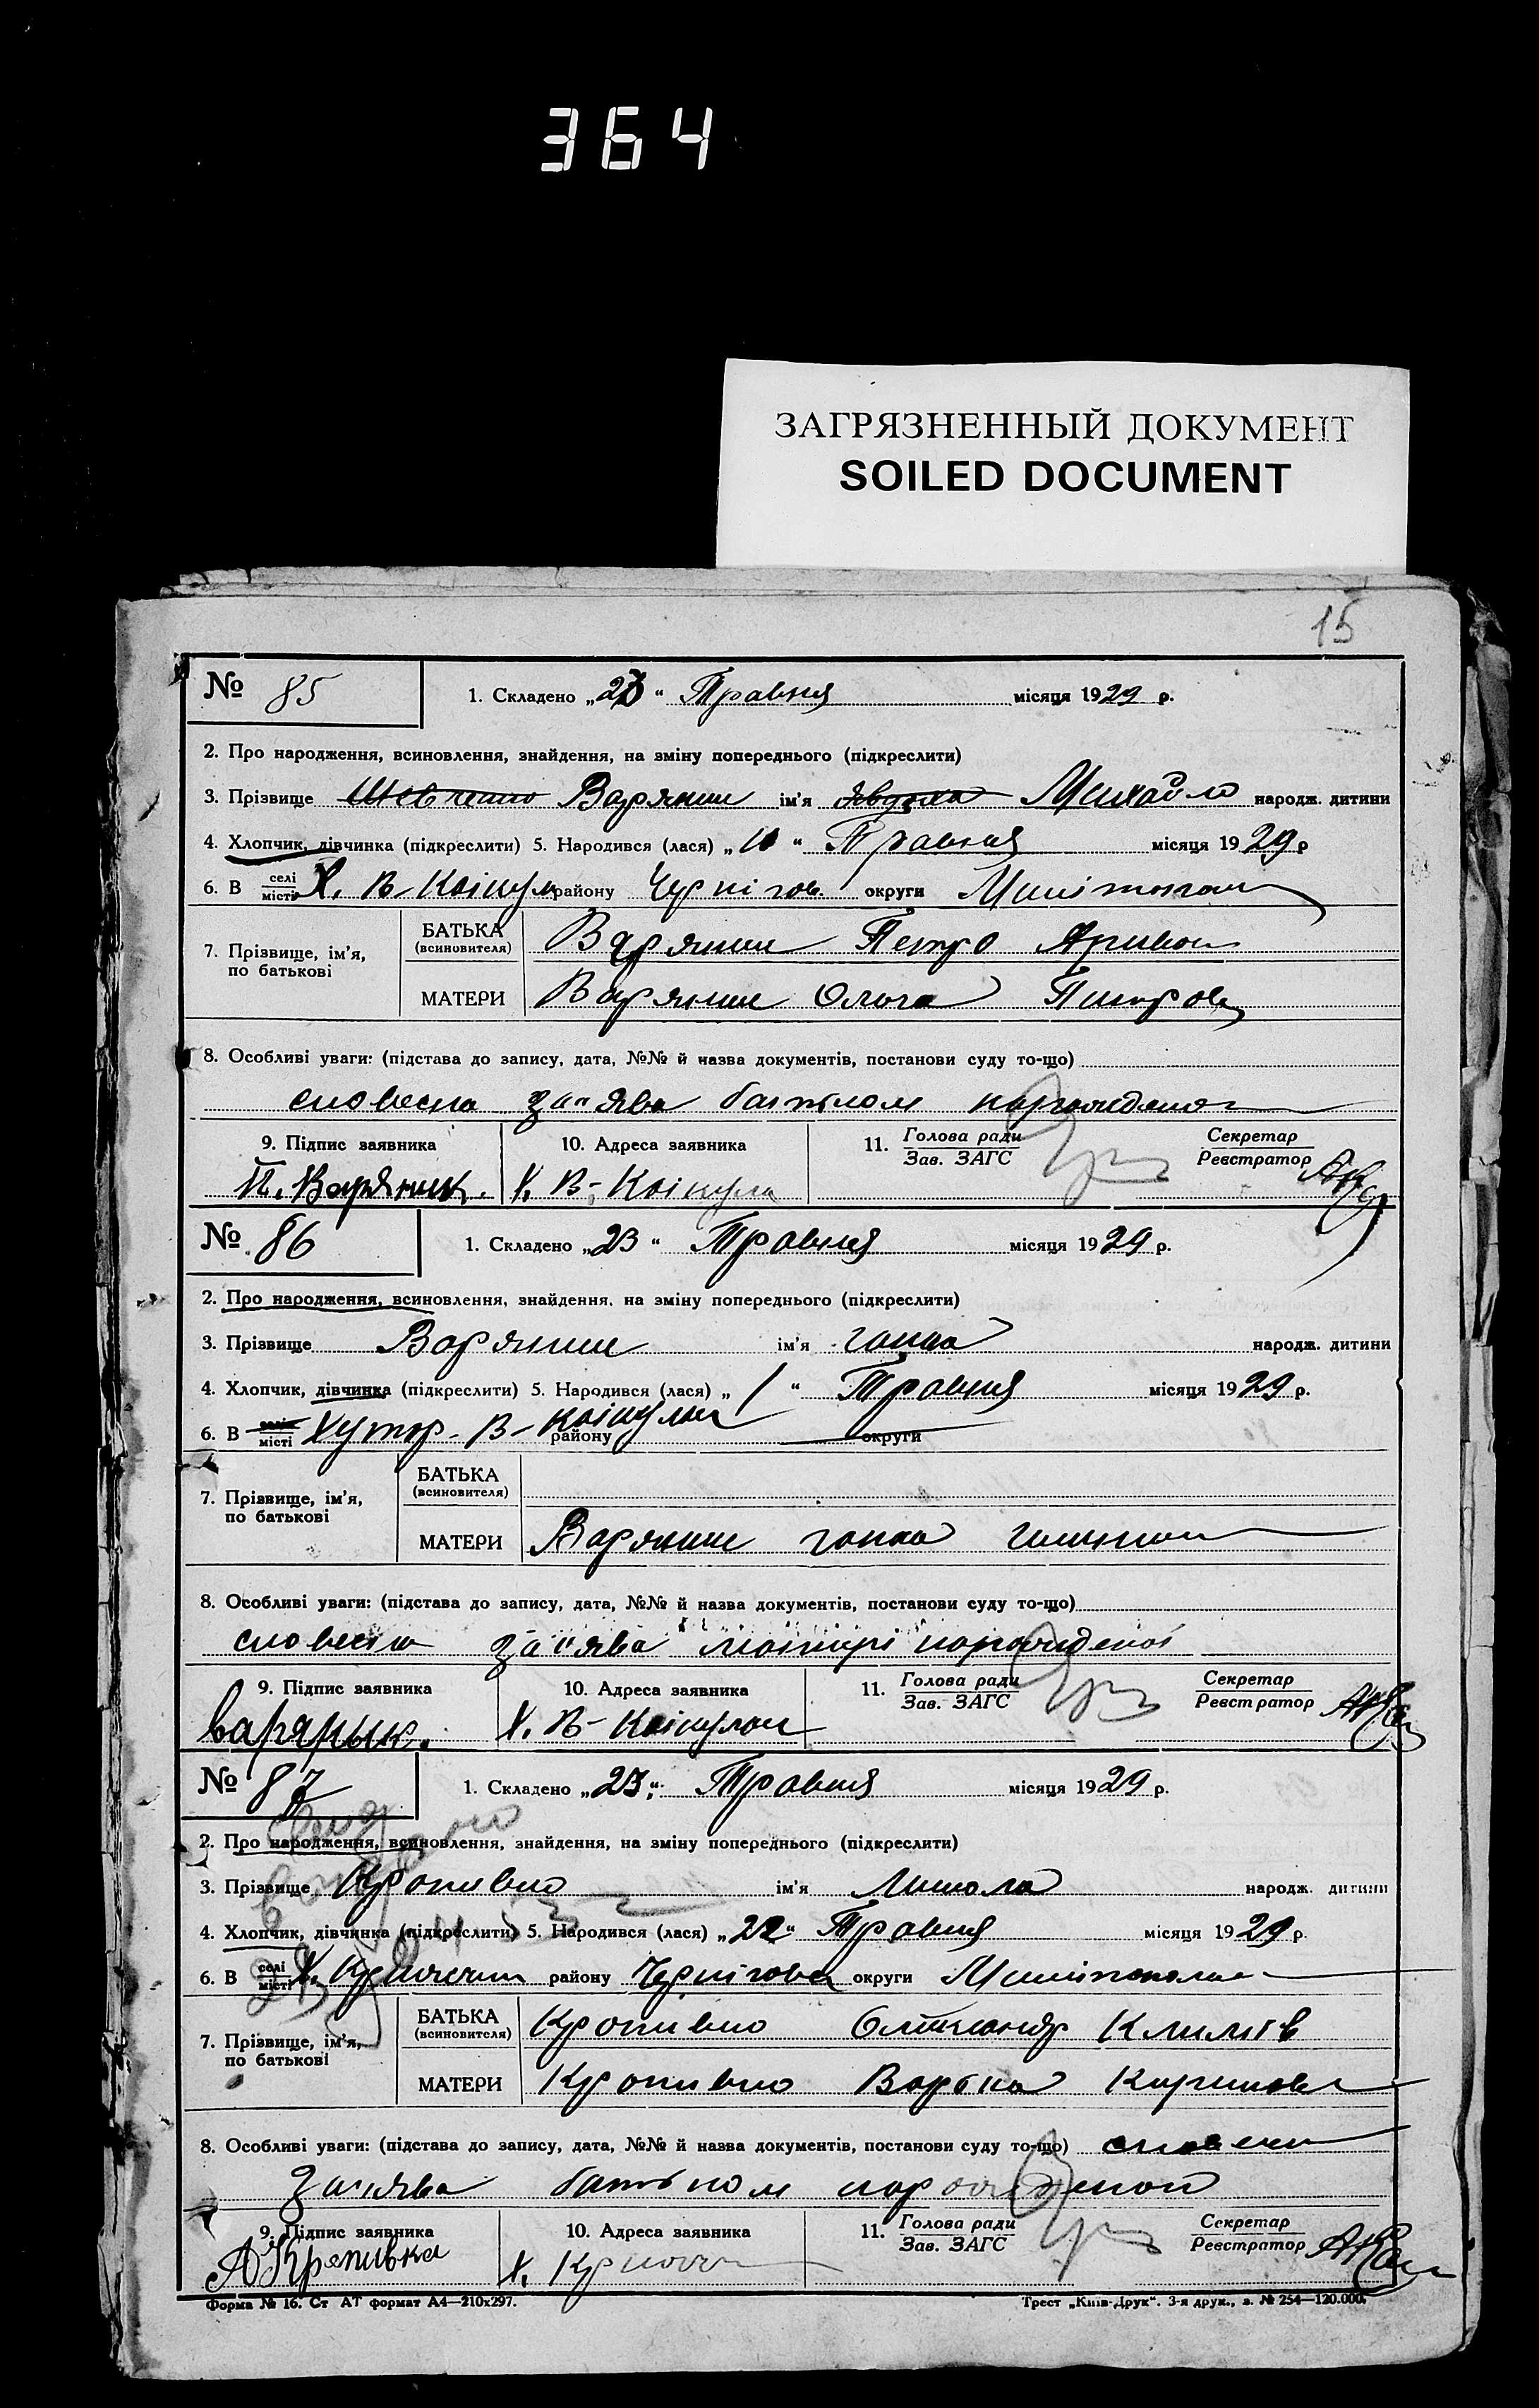 364
ЗАГРЯЗНЕННЫЙ ДОКУМЕНТ
SOILED DOCUMENT
15
№ 85 1. Складено „23“ Травня місяця 1929 р.
2. Про народження, всиновлення, знайдення, на зміну попереднього (підкреслити)
3. Прізвище Варяник ім'я Михайло народж. дитини
4. Хлопчик, дівчинка (підкреслити) 5. Народився (лася) „11“ Травня місяця 1929 р
6. В селі місті Х. В- району Чернігов. округи
7. Прізвище, ім'я, по батькові
БАТЬКА (всиновителя) Варяник Петро
МАТЕРИ Варяник Ольга Петров
8. Особливі уваги: (підстава до запису, дата, №№ й назва документів, постанови суду то-що)
словесна заява батьком
9. Підпис заявника 10. Адреса заявника 11. Голова ради Зав. ЗАГС Секретар Реєстратор
П. Варяник. Х. В-
№ 86 1. Складено „23“ Травня місяця 1929 р.
2. Про народження, всиновлення, знайдення, на зміну попереднього (підкреслити)
3. Прізвище Варяник ім'я Ганна народж. дитини
4. Хлопчик, дівчинка (підкреслити) 5. Народився (лася) „1“ Травня місяця 1929 р.
6. В селі місті Хутор. В- району округи
7. Прізвище, ім'я, по батькові
БАТЬКА (всиновителя)
МАТЕРИ Варяник Ганна
8. Особливі уваги: (підстава до запису, дата, №№ й назва документів, постанови суду то-що)
словесна заява матері
9. Підпис заявника 10. Адреса заявника 11. Голова ради Зав. ЗАГС Секретар Реєстратор
Варярык. Х. В-
№ 87 1. Складено „23“ Травня місяця 1929 р.
2. Про народження, всиновлення, знайдення, на зміну попереднього (підкреслити)
3. Прізвище Кропивко ім'я Микола народж. дитини
4. Хлопчик, дівчинка (підкреслити) 5. Народився (лася) „22“ Травня місяця 1929 р.
6. В селі місті Х. району Чернігова округи
7. Прізвище, ім'я, по батькові
БАТЬКА (всиновителя) Кропивко Олександр Климів
МАТЕРИ Кропивко Варька
8. Особливі уваги: (підстава до запису, дата, №№ й назва документів, постанови суду то-що) словесн
заява батьком
9. Підпис заявника 10. Адреса заявника 11. Голова ради Зав. ЗАГС Секретар Реєстратор
А Кропивка Х.
Форма № 16. Ст АТ формат А4—210х297. Трест „Київ-Друк“. 3-я друк., з. № 254—120.000.